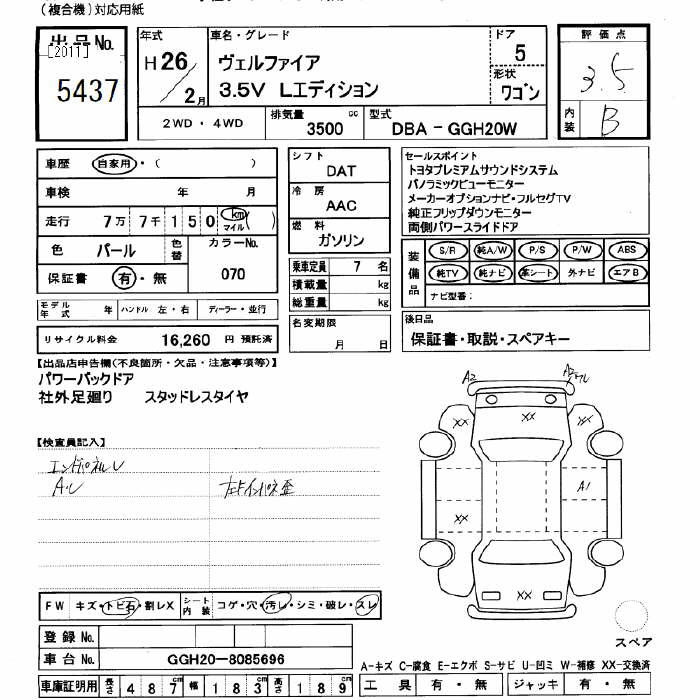 (複合機)対応用紙
出品No.
[2011]
5437
年式
H26/2月
車名・グレード
ヴェルファイア
3.5V Lエディション
ドア
5
形状
ワゴン
評価点
3.5
内装
B
2WD・4WD
排気量
3500 cc
型式
DBA-GGH20W
車歴 自家用・( )
車検 年 月
走行 7万 7千 1 5 0 km マイル ( )
色 パール 色替
カラーNo.
070
保証書 有・無
モデル年式 年 ハンドル 左・右 ディーラー・並行
リサイクル料金 16,260 円 預託済
シフト
DAT
冷房
AAC
燃料
ガソリン
乗車定員 7 名
積載量 kg
総重量 kg
名変期限
月 日
セールスポイント
トヨタプレミアムサウンドシステム
パノラミックビューモニター
メーカーオプションナビ・フルセグTV
純正フリップダウンモニター
両側パワースライドドア
装備品
S/R 純A/W P/S P/W ABS
純TV 純ナビ 革シート 外ナビ エアB
ナビ型番:
後日品
保証書・取説・スペアキー
【出品店申告欄(不良箇所・欠品・注意事項等)】
パワーバックドア
社外足廻り スタッドレスタイヤ
【検査員記入】
エンドパネルU
A・U
左ドインパネ歪
A2
A2
XX
XX
XX
A1
XX
XX
スペア
FW キズ・トビ石・割レX シート内装 コゲ・穴・汚レ・シミ・破レ・スレ
登録No.
車台No. GGH20-8085696
車庫証明用 長さ 4 8 7 cm 幅 1 8 3 cm 高さ 1 8 9 cm
A-キズ C-腐食 E-エクボ S-サビ U-凹ミ W-補修 XX-交換済
工具 有・無 ジャッキ 有・無